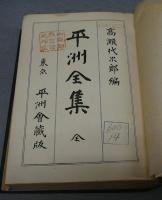 高瀬代次郎編
平洲全集 全
東京 平洲會藏版